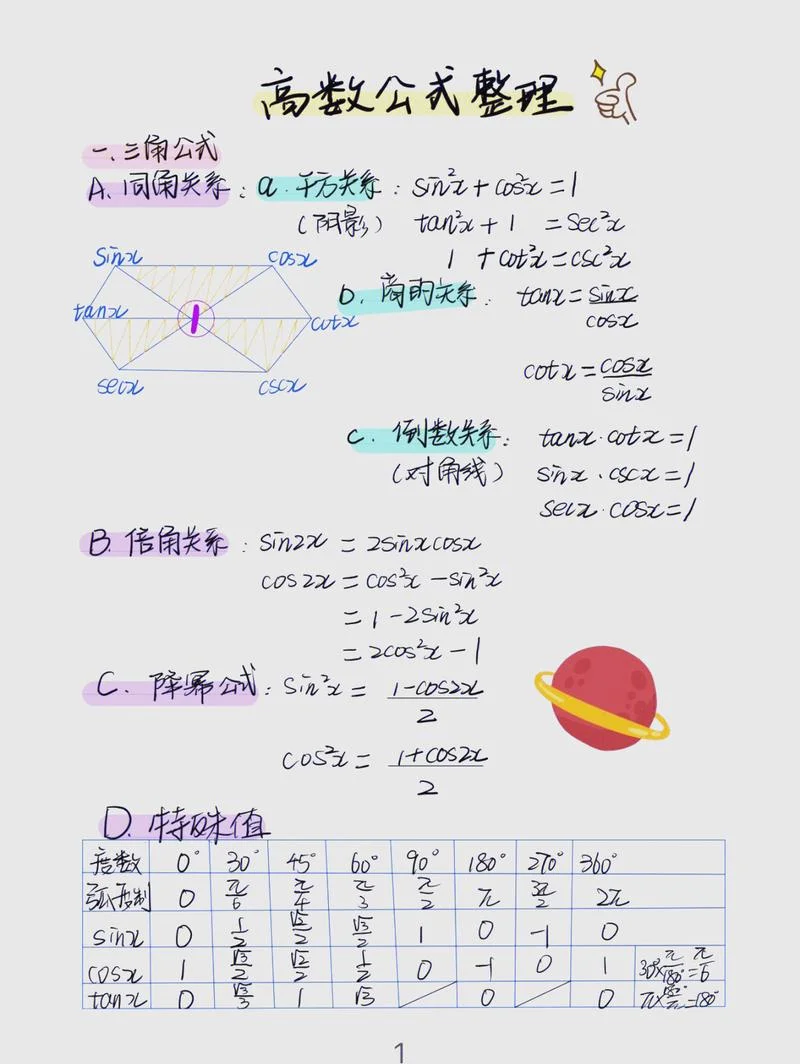 高数公式整理
一、三角公式
A. 同角关系: a. 平方关系: sin²x + cos²x = 1
(阴影) tan²x + 1 = sec²x
1 + cot²x = csc²x
sinx cosx
tanx 1 cotx
secx cscx
b. 商的关系: tanx = sinx/cosx
cotx = cosx/sinx
c. 倒数关系: tanx·cotx = 1
(对角线) sinx·cscx = 1
secx·cosx = 1
B. 倍角关系: sin2x = 2sinxcosx
cos2x = cos²x - sin²x
= 1 - 2sin²x
= 2cos²x - 1
C. 降幂公式: sin²x = (1-cos2x)/2
cos²x = (1+cos2x)/2
D. 特殊值
度数 0° 30° 45° 60° 90° 180° 270° 360°
弧度制 0 π/6 π/4 π/3 π/2 π 3π/2 2π
sinx 0 1/2 √2/2 √3/2 1 0 -1 0
cosx 1 √3/2 √2/2 1/2 0 -1 0 1 30°×π/180° = π/6
tanx 0 √3/3 1 √3 / 0 / 0 π×180°/π = 180°
1